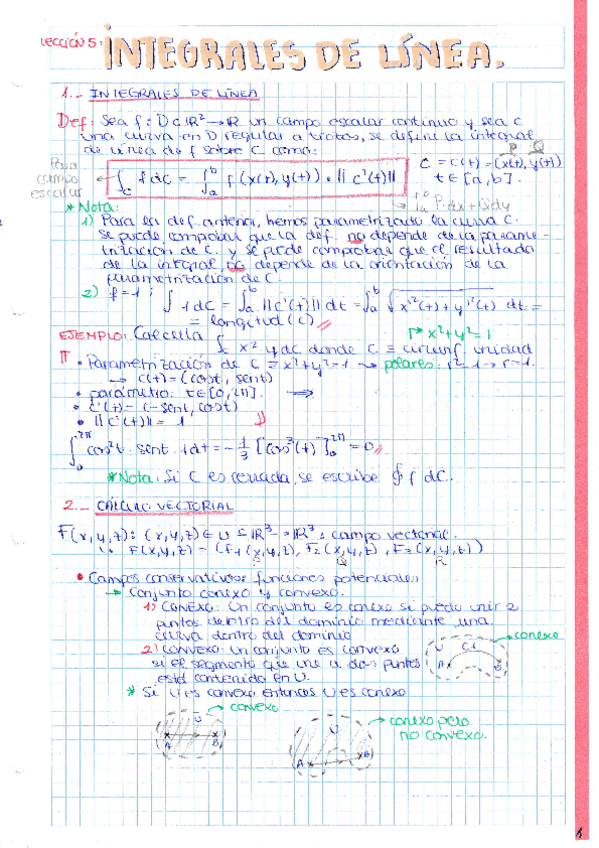 LECCIÓN 5: INTEGRALES DE LÍNEA.
1.- INTEGRALES DE LÍNEA
Def: Sea f: D⊂ℝ²→ℝ un campo escalar continuo y sea C
una curva en D regular a trozos, se define la integral
de línea de f sobre C como:
Para campo escalar
∫_C f dC = ∫_a^b f(x(t), y(t)) · ||c'(t)||
C = c(t) = (x(t), y(t))
P Q
t ∈ [a, b].
∫_a^b P·dx + Q·dy
* Nota:
1) Para la def. anterior, hemos parametrizado la curva C.
Se puede comprobar que la def. no depende de la parame-
trización de C. y se puede comprobar que el resultado
de la integral no depende de la orientación de la
parametrización de C.
2) f=1 ; ∫ 1 dC = ∫_a^b ||c'(t)|| dt = ∫_a^b √(x'²(t) + y'²(t)) dt =
= longitud (C) //
EJEMPLO: Calcula ∫_C x² y dC donde C ≡ circunf. unidad
→ x²+y²=1
• Parametrización de C ≡ x²+y²=1 → polares: r²=1 → r=1.
→ c(t) = (cost, sent)
• parámetro: t∈[0, 2π]. ⟹
• c'(t) = (-sent, cost)
• ||c'(t)|| = 1
∫_0^2π cos²t · sent · 1 dt = -1/3 [cos³(t)]_0^2π = 0 //
* Nota: Si C es cerrada, se escribe ∮ f dC.
2.- CÁLCULO VECTORIAL
F(x,y,z): (x,y,z) ∈ U ⊆ ℝ³ → ℝ³ : campo vectorial.
F(x,y,z) = (F1(x,y,z), F2(x,y,z), F3(x,y,z))
Q R
• Campos conservativos: funciones potenciales
→ Conjunto conexo y convexo.
1) CONEXO: Un conjunto es conexo si puedo unir 2
puntos dentro del dominio mediante una
curva dentro del dominio
→ conexo
2) CONVEXO: Un conjunto es convexo
si el segmento que une a dos puntos
está contenido en U.
U C1
A B
* Si U es convexo entonces U es conexo
→ convexo
U
A B
→ conexo pero
no convexo.
U
A B
1